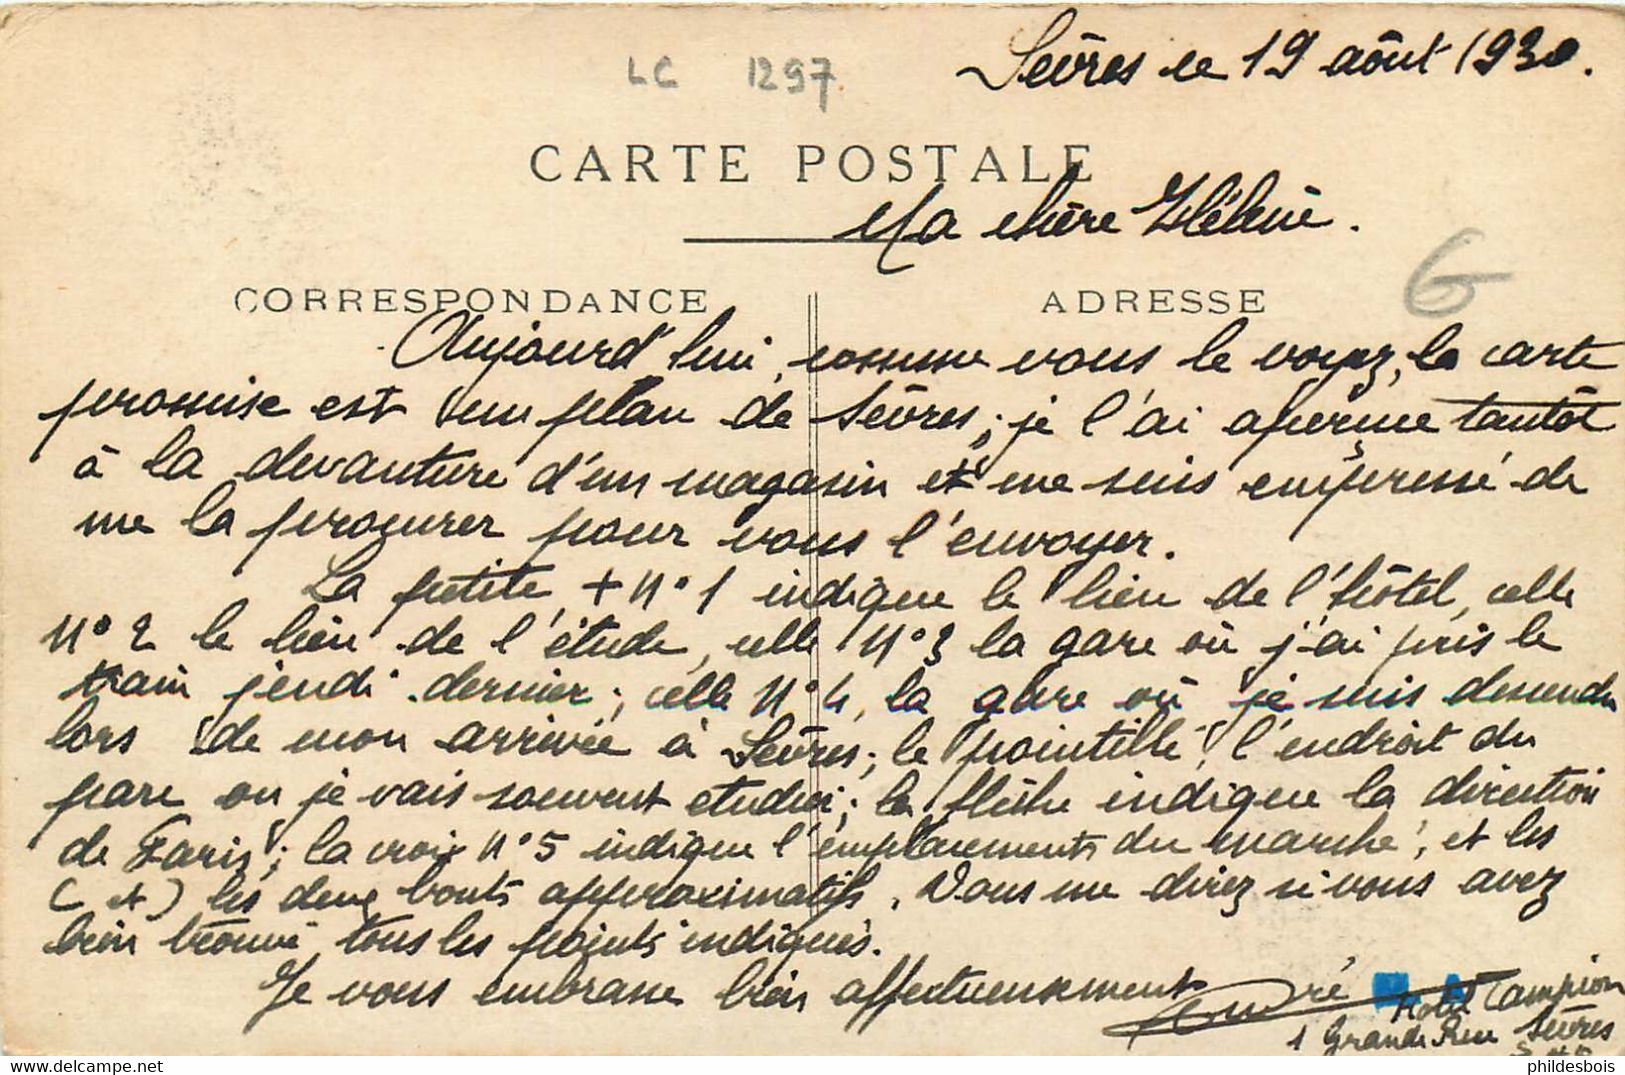 Sèvres le 19 août 1930.
LC 1297
CARTE POSTALE
Ma chère Hélène.
6
CORRESPONDANCE ADRESSE
Aujourd'hui, comme vous le voyez, la carte
promise est un plan de Sèvres; je l'ai aperçue tantôt
à la devanture d'un magasin et me suis empressé de
me la procurer pour vous l'envoyer.
La petite + N°1 indique le lieu de l'hôtel, celle
N°2 le lieu de l'étude, celle N°3 la gare où j'ai pris le
train jeudi dernier; celle N°4, la gare où je suis descendu
lors de mon arrivée à Sèvres; le pointillé, l'endroit du
parc ou je vais souvent etudier; la flèche indique la direction
de Paris; la croix N°5 indique l'emplacements du marché, et les
( et ) les deux bouts approximatifs. Vous me direz si vous avez
bien trouvé tous les points indiqués.
Je vous embrasse bien affectueusement
André
Hotel Campion
1 Grande Rue Sèvres
S. et O.
phildesbois